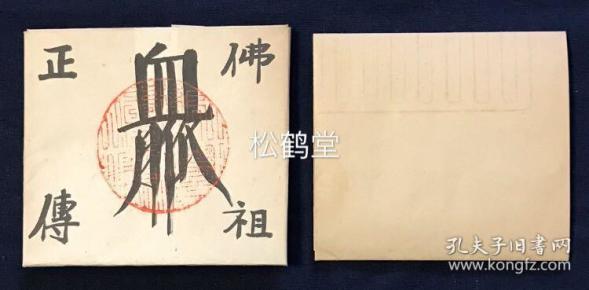 佛祖
正傳
血脈
松鹤堂
孔夫子旧书网
www.kongfz.com